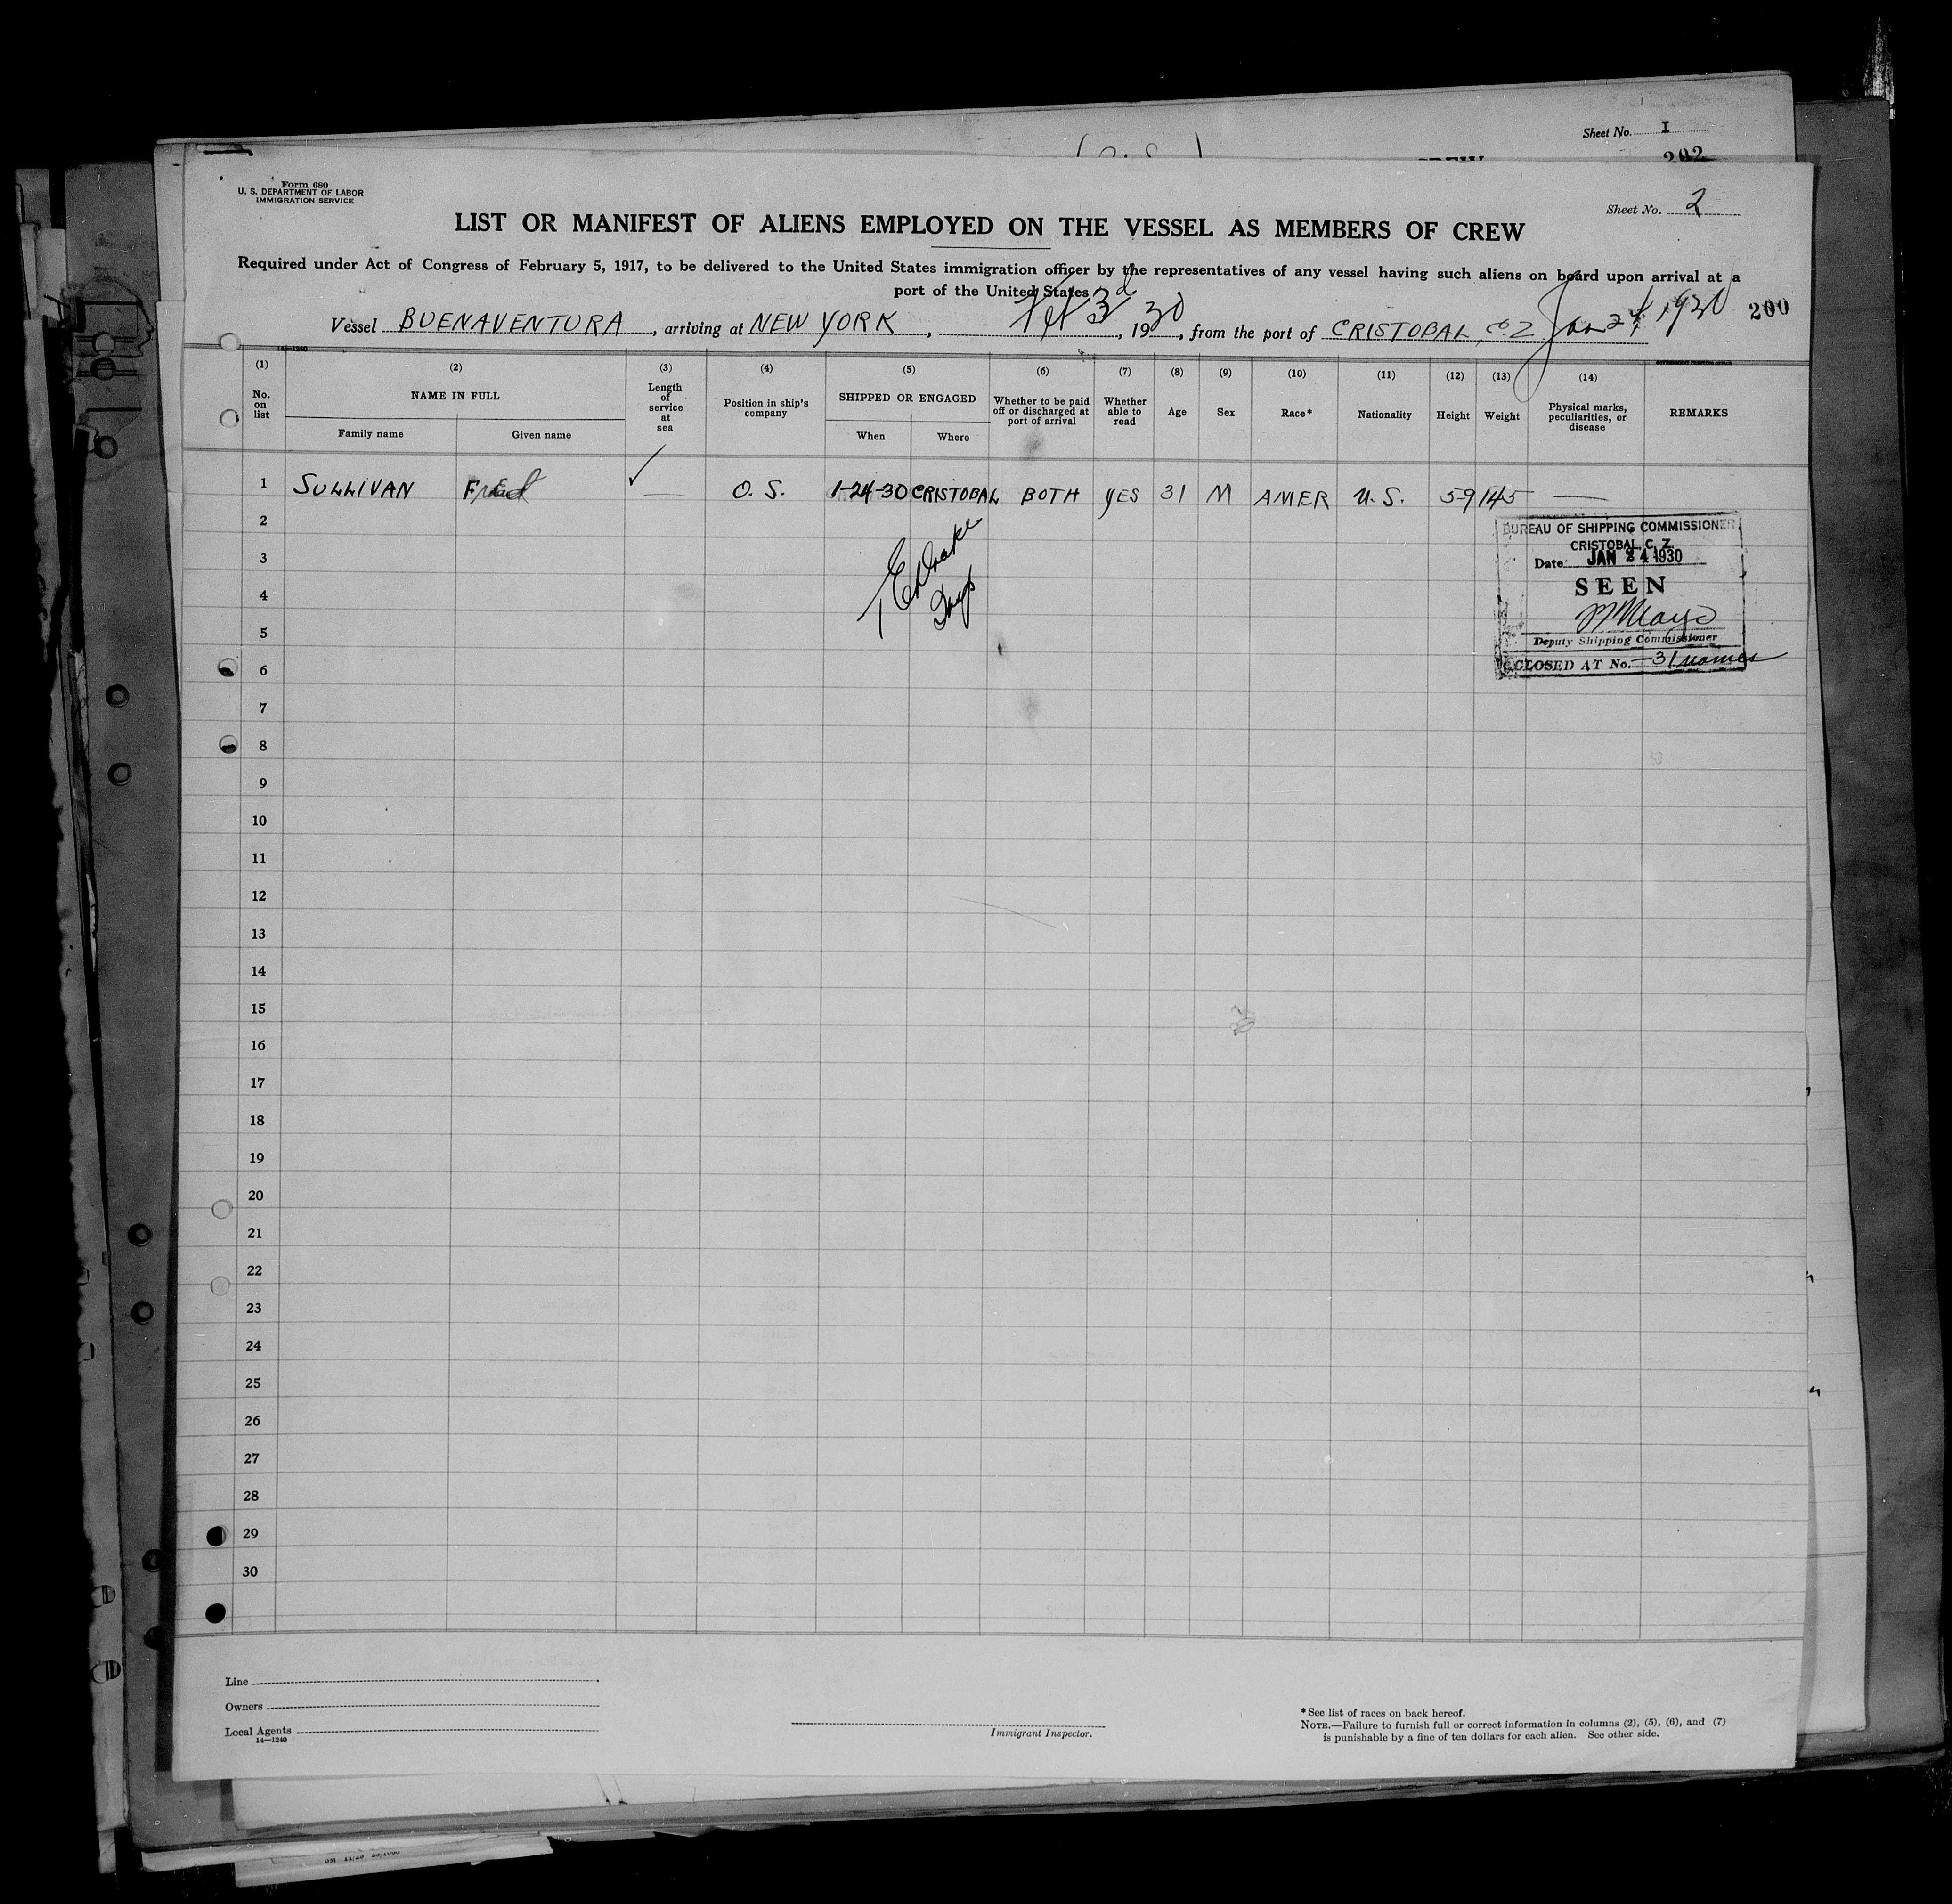 Sheet No. I
202
Form 680
U. S. DEPARTMENT OF LABOR
IMMIGRATION SERVICE
Sheet No. 2
LIST OR MANIFEST OF ALIENS EMPLOYED ON THE VESSEL AS MEMBERS OF CREW
Required under Act of Congress of February 5, 1917, to be delivered to the United States immigration officer by the representatives of any vessel having such aliens on board upon arrival at a
port of the United States
Vessel BUENAVENTURA, arriving at NEW YORK, Feb 3d, 1930, from the port of CRISTOBAL, C.Z. Jan 24, 1930 200
14-1240
(1) (2) (3) (4) (5) (6) (7) (8) (9) (10) (11) (12) (13) (14)
No. on list
NAME IN FULL
Family name
Given name
Length of service at sea
Position in ship's company
SHIPPED OR ENGAGED
When
Where
Whether to be paid off or discharged at port of arrival
Whether able to read
Age
Sex
Race*
Nationality
Height
Weight
Physical marks, peculiarities, or disease
REMARKS
1 SULLIVAN Fred ✓ — O. S. 1-24-30 CRISTOBAL BOTH YES 31 M AMER U. S. 5-9 145 —
2
3
4
5
6
7
8
9
10
11
12
13
14
15
16
17
18
19
20
21
22
23
24
25
26
27
28
29
30
BUREAU OF SHIPPING COMMISSIONER
CRISTOBAL, C. Z.
Date: JAN 24 1930
SEEN
Deputy Shipping Commissioner
CLOSED AT No. — 31 names
Line
Owners
Local Agents
14—1240
Immigrant Inspector.
*See list of races on back hereof.
NOTE.—Failure to furnish full or correct information in columns (2), (5), (6), and (7)
is punishable by a fine of ten dollars for each alien. See other side.